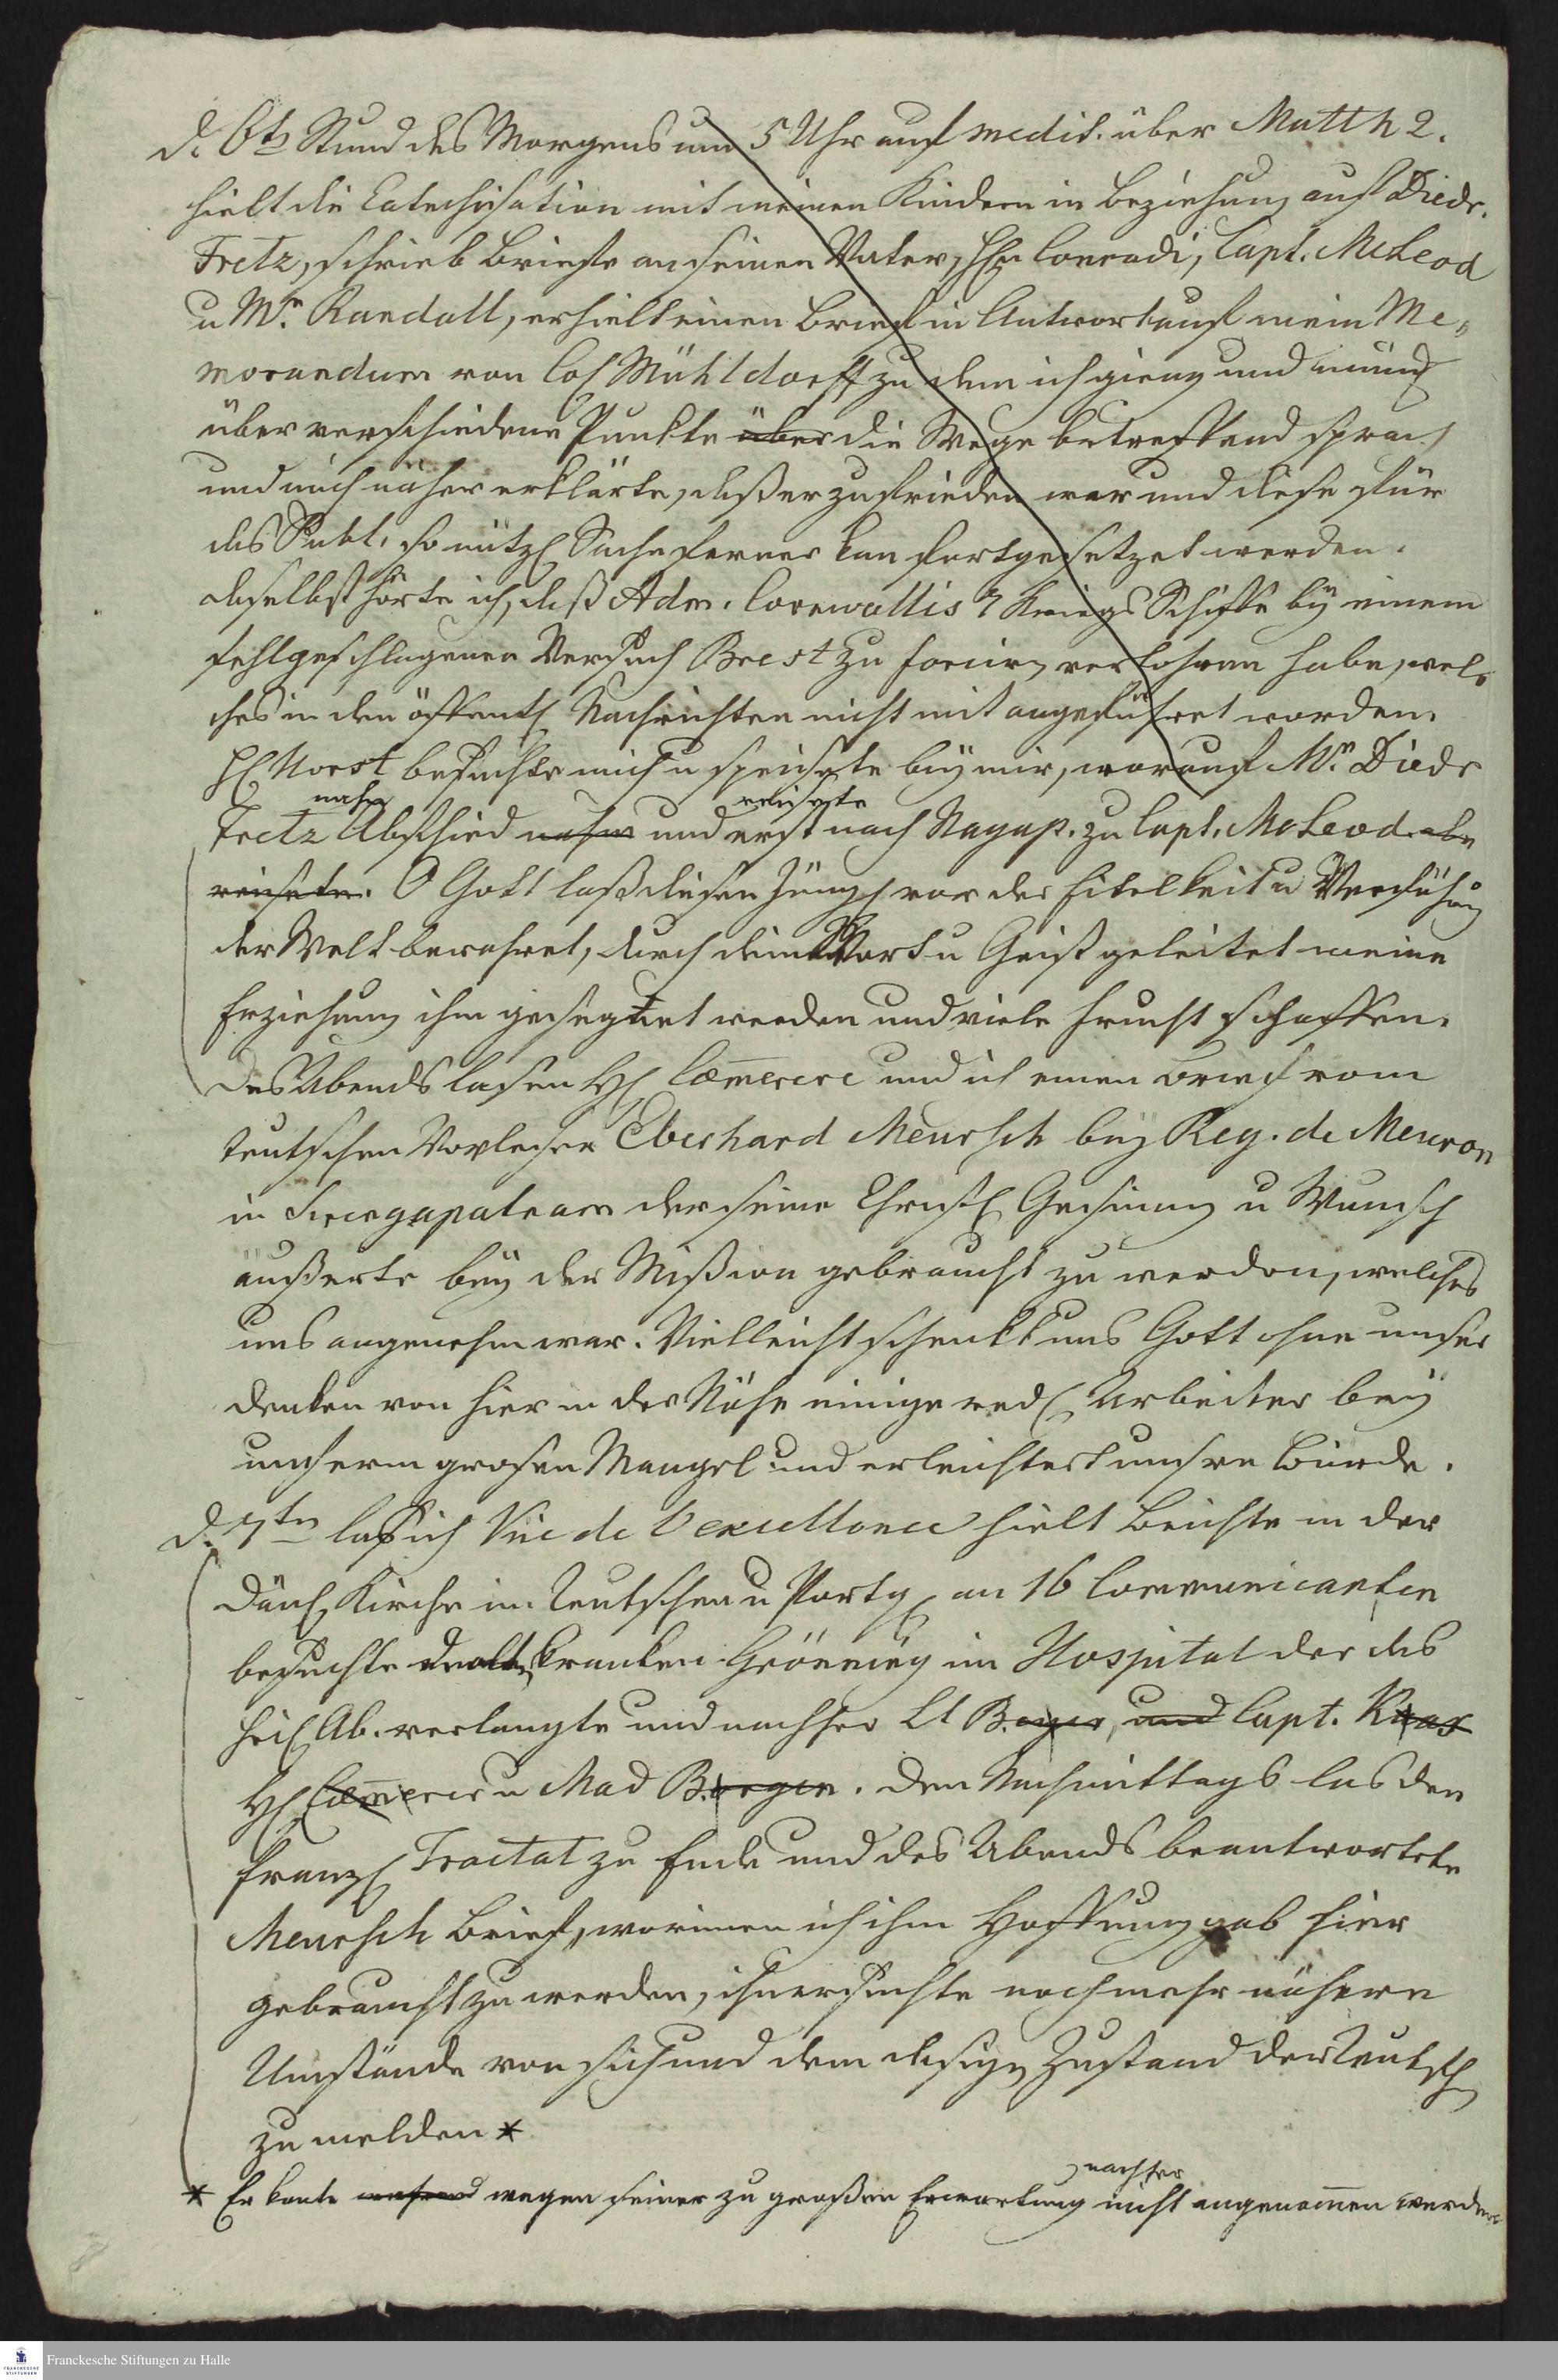 d. 6tn Stund des Morgens um 5 Uhr auf medit. über Matth 2.
hielt die Catechisation mit meinen Kindern in Beziehung auf Diedr.
Fretz, schrieb Briefe an seinen Vater, HEn Conradi, Capt. McLeod
u Mr. Randall, erhielt einen Brief in Antwort auf mein Me-
morandum von Col Mühldorff zu dem ich gieng und mündl
über verschiedene Punkte über die Wege betreffend sprach
und mich näher erklärte, daß er zufrieden war und diese für
das Publ. so nützl Sache ferner kan fortgesetzet werden.
daselbst hörte ich, daß Adm. Cornwallis 7 Kriegs Schiffe by einem
fehlgeschlagenen Versuch Brest zu forcirn verlohren habe, wel-
ches in den öffentl Nachrichten nicht mit angeführet worden.
HE Horst besuchte mich u speisete bey mir, worauf Mr. Diedr
nahm reisete
Fretz Abschied nahm und erst nach Nagap. zu Capt. McLeod ab
reisete. O Gott laß diesen Jüngl vor der Eitelkeit u Verführung
der Welt bewahret, durch dein Wort u Geist geleitet meine
Erziehung ihm gesegnet werden und viele Frucht schaffen.
Des Abends lasen HE Cæmerer und ich einen Brief vom
teutschen Vorleser Eberhard Meursch bey Reg. de Meuron
in Siringapatnam der seine Christl Gesinung u Wunsch
äußerte bey der Mißion gebraucht zu werden, welches
uns angenehm war. Vielleicht schenkt uns Gott ohne unser
denken von hier in der Nähe einige redl Arbeiter bey
unserm grosen Mangel und erleichtert unsre Bürde.
d. 7tn las ich Vue de l'excellence hielt Beichte in der
Dän Kirche im Teutschen u Portg an 16 Communicanten
besuchte kranken Grönning im Hospital der das
heil Ab. verlangte und nachher Lt B. und Capt.
HE Cæmerer u Mad B. Den Nachmittags las den
franz Tractat zu Ende und des Abends beantwortete
Meursch Brief, worinnen ich ihm Hoffnung gab hier
gebraucht zu werden, ihn ersuchte noch mehr nähere
Umstände von sich und dem dasign Zustand der Teutsch
zu melden *
nachher
* Er konte wegen seiner zu großen Erwartung nicht angenom̅en werden
Franckesche Stiftungen zu Halle